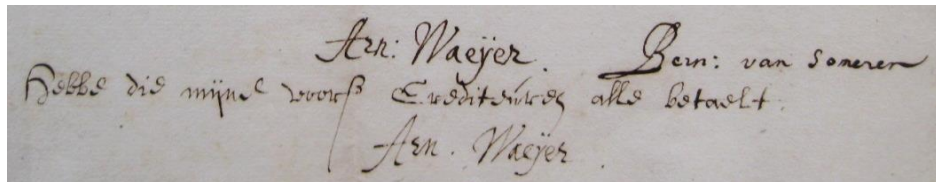 Arn: Waeÿer. Bern: van Someren
Hebbe die mijne voors Crediteuren alle betaelt.
Arn. Waeÿer.